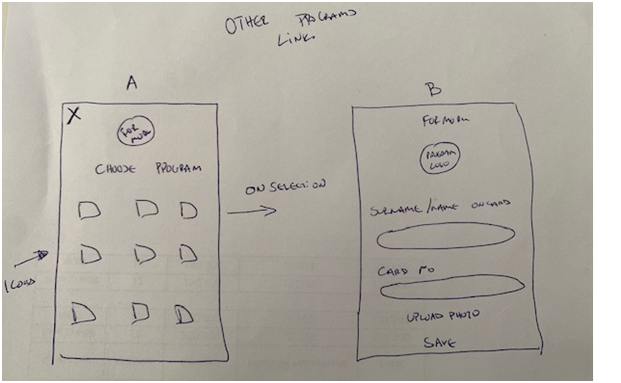 OTHER PROGRAMS
LINK
A
X
FOR
MORE
CHOOSE PROGRAM
ON SELECTION
B
FORMORE
PROGRAM
LOGO
SURNAME/NAME ON CARD
CARD NO
UPLOAD PHOTO
SAVE